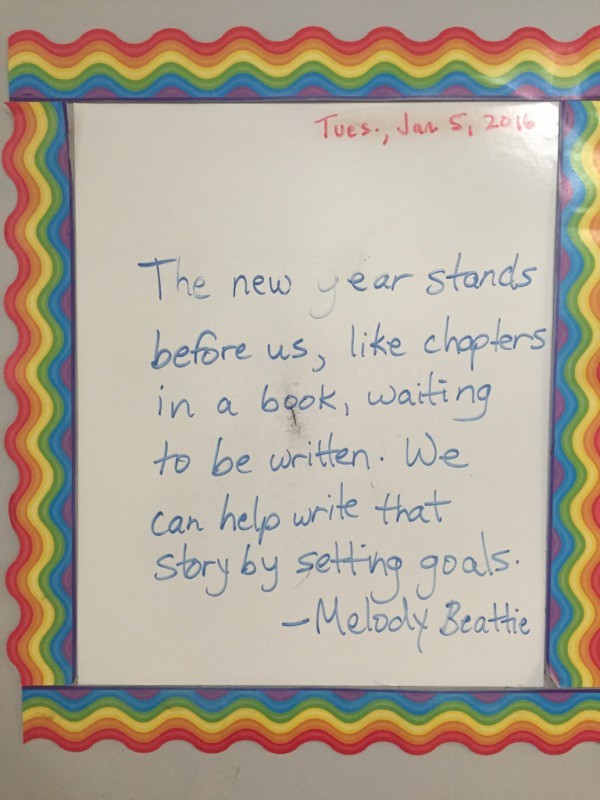 Tues., Jan 5, 2016
The new year stands
before us, like chapters
in a book, waiting
to be written. We
can help write that
story by setting goals.
-Melody Beattie